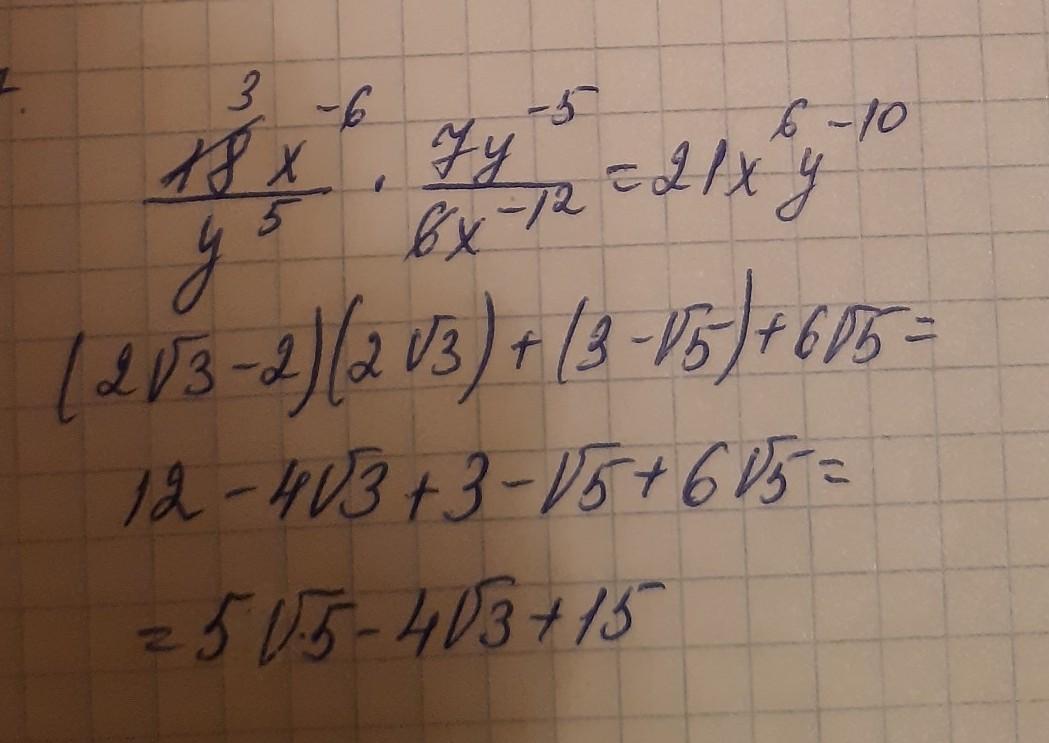 3
18x^-6 / y^5 · 7y^-5 / 6x^-12 = 21x^6 y^-10
(2√3-2)(2√3)+(3-√5)+6√5=
12-4√3+3-√5+6√5=
=5√5-4√3+15